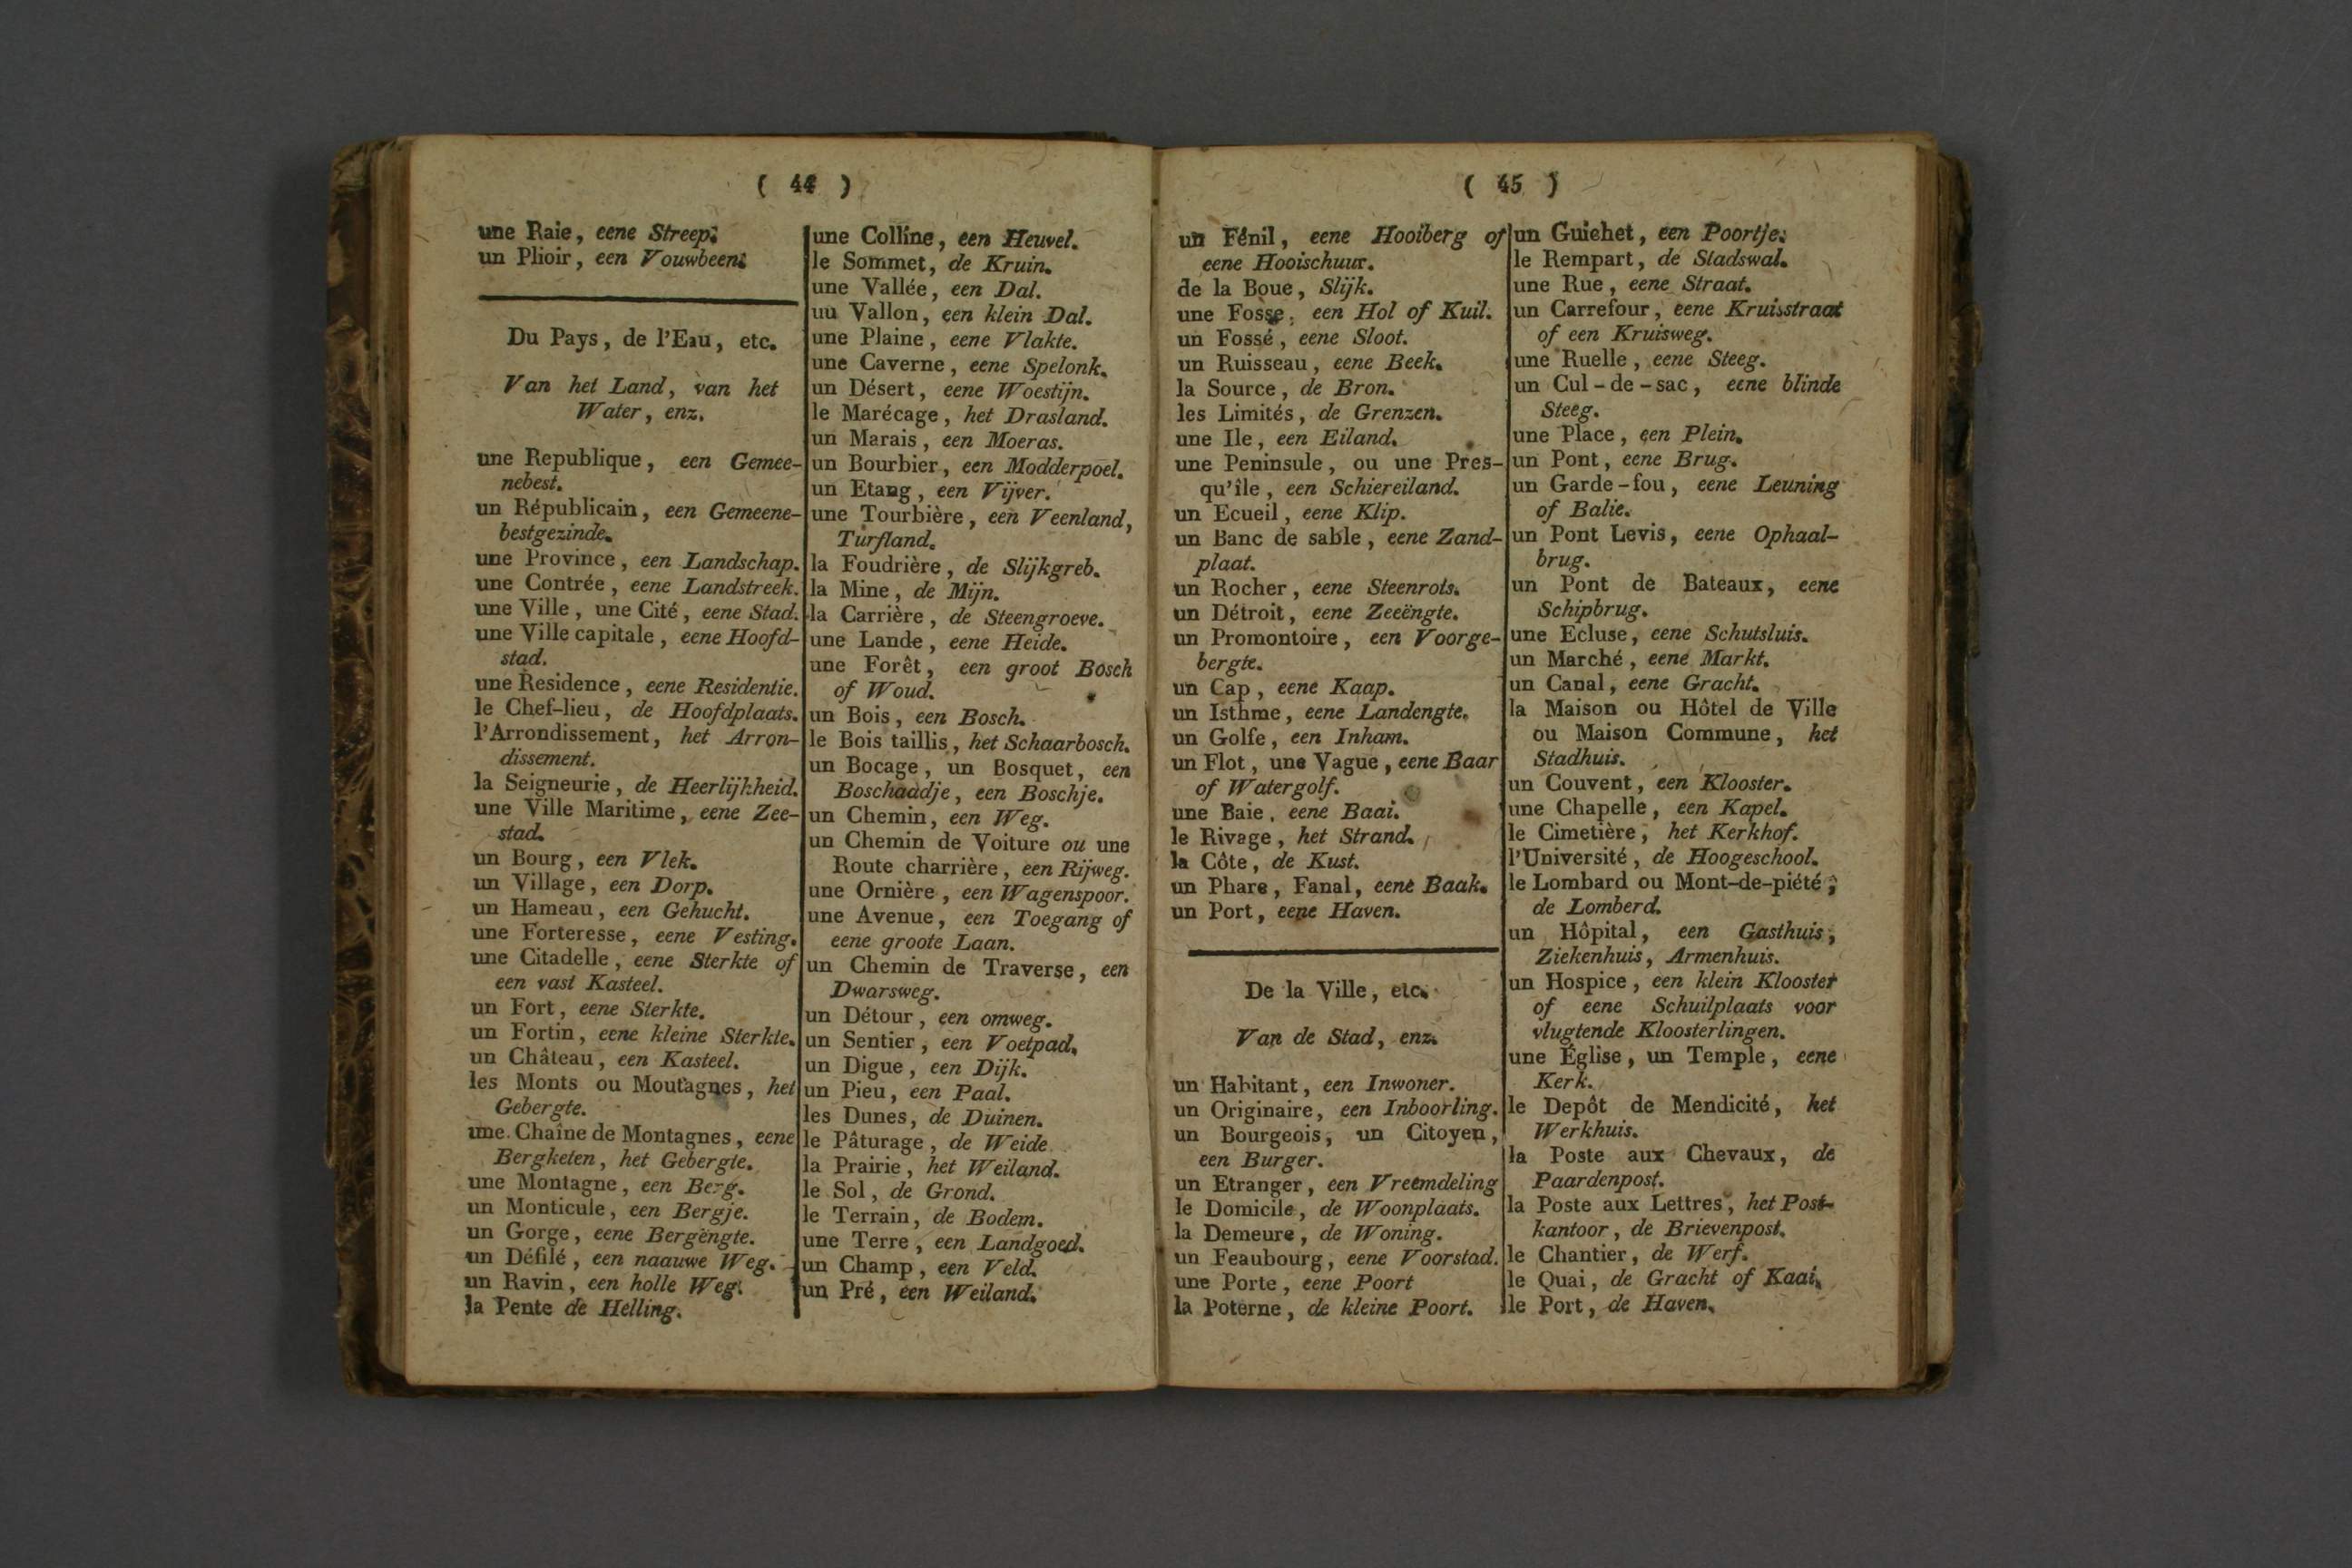 ( 44 )
une Raie, eene Streep.
un Plioir, een Vouwbeen.
Du Pays, de l'Eau, etc.
Van het Land, van het
Water, enz.
une Republique, een Gemee-
nebest.
un Républicain, een Gemeene-
bestgezinde.
une Province, een Landschap.
une Contrée, eene Landstreek.
une Ville, une Cité, eene Stad.
une Ville capitale, eene Hoofd-
stad.
une Residence, eene Residentie.
le Chef-lieu, de Hoofdplaats.
l'Arrondissement, het Arron-
dissement.
la Seigneurie, de Heerlijkheid.
une Ville Maritime, eene Zee-
stad.
un Bourg, een Vlek.
un Village, een Dorp.
un Hameau, een Gehucht.
une Forteresse, eene Vesting.
une Citadelle, eene Sterkte of
een vast Kasteel.
un Fort, eene Sterkte.
un Fortin, eene kleine Sterkte.
un Château, een Kasteel.
les Monts ou Moutagnes, het
Gebergte.
une Chaîne de Montagnes, eene
Bergketen, het Gebergte.
une Montagne, een Berg.
un Monticule, een Bergje.
un Gorge, eene Bergëngte.
un Défilé, een naauwe Weg.
un Ravin, een holle Weg.
la Pente de Helling.
une Colline, een Heuvel.
le Sommet, de Kruin.
une Vallée, een Dal.
uu Vallon, een klein Dal.
une Plaine, eene Vlakte.
une Caverne, eene Spelonk.
un Désert, eene Woestijn.
le Marécage, het Drasland.
un Marais, een Moeras.
un Bourbier, een Modderpoel.
un Etang, een Vijver.
une Tourbière, een Veenland,
Turfland.
la Foudrière, de Slijkgreb.
la Mine, de Mijn.
la Carrière, de Steengroeve.
une Lande, eene Heide.
une Forêt, een groot Bosch
of Woud.
un Bois, een Bosch.
le Bois taillis, het Schaarbosch.
un Bocage, un Bosquet, een
Boschaadje, een Boschje.
un Chemin, een Weg.
un Chemin de Voiture ou une
Route charrière, een Rijweg.
une Ornière, een Wagenspoor.
une Avenue, een Toegang of
eene groote Laan.
un Chemin de Traverse, een
Dwarsweg.
un Détour, een omweg.
un Sentier, een Voetpad.
un Digue, een Dijk.
un Pieu, een Paal.
les Dunes, de Duinen.
le Pâturage, de Weide
la Prairie, het Weiland.
le Sol, de Grond.
le Terrain, de Bodem.
une Terre, een Landgoed.
un Champ, een Veld.
un Pré, een Weiland.
( 45 )
un Fénil, eene Hooiberg of
eene Hooischuur.
de la Boue, Slijk.
une Fosse, een Hol of Kuil.
un Fossé, eene Sloot.
un Ruisseau, eene Beek.
la Source, de Bron.
les Limités, de Grenzen.
une Ile, een Eiland.
une Peninsule, ou une Pres-
qu'île, een Schiereiland.
un Ecueil, eene Klip.
un Banc de sable, eene Zand-
plaat.
un Rocher, eene Steenrots.
un Détroit, eene Zeeëngte.
un Promontoire, een Voorge-
bergte.
un Cap, eene Kaap.
un Isthme, eene Landengte.
un Golfe, een Inham.
un Flot, une Vague, eene Baar
of Watergolf.
une Baie, eene Baai.
le Rivage, het Strand.
la Côte, de Kust.
un Phare, Fanal, eene Baak.
un Port, eene Haven.
De la Ville, etc.
Van de Stad, enz.
un Habitant, een Inwoner.
un Originaire, een Inboorling.
un Bourgeois, un Citoyen,
een Burger.
un Etranger, een Vreemdeling
le Domicile, de Woonplaats.
la Demeure, de Woning.
un Feaubourg, eene Voorstad.
une Porte, eene Poort
la Poterne, de kleine Poort.
un Guichet, een Poortje.
le Rempart, de Stadswal.
une Rue, eene Straat.
un Carrefour, eene Kruisstraat
of een Kruisweg.
une Ruelle, eene Steeg.
un Cul-de-sac, eene blinde
Steeg.
une Place, een Plein.
un Pont, eene Brug.
un Garde-fou, eene Leuning
of Balie.
un Pont Levis, eene Ophaal-
brug.
un Pont de Bateaux, eene
Schipbrug.
une Ecluse, eene Schutsluis.
un Marché, eene Markt.
un Canal, eene Gracht.
la Maison ou Hôtel de Ville
ou Maison Commune, het
Stadhuis.
un Couvent, een Klooster.
une Chapelle, een Kapel.
le Cimetière, het Kerkhof.
l'Université, de Hoogeschool.
le Lombard ou Mont-de-piété,
de Lomberd.
un Hôpital, een Gasthuis,
Ziekenhuis, Armenhuis.
un Hospice, een klein Klooster
of eene Schuilplaats voor
vlugtende Kloosterlingen.
une Église, un Temple, eene
Kerk.
le Depôt de Mendicité, het
Werkhuis.
la Poste aux Chevaux, de
Paardenpost.
la Poste aux Lettres, het Post-
kantoor, de Brievenpost.
le Chantier, de Werf.
le Quai, de Gracht of Kaai.
le Port, de Haven.